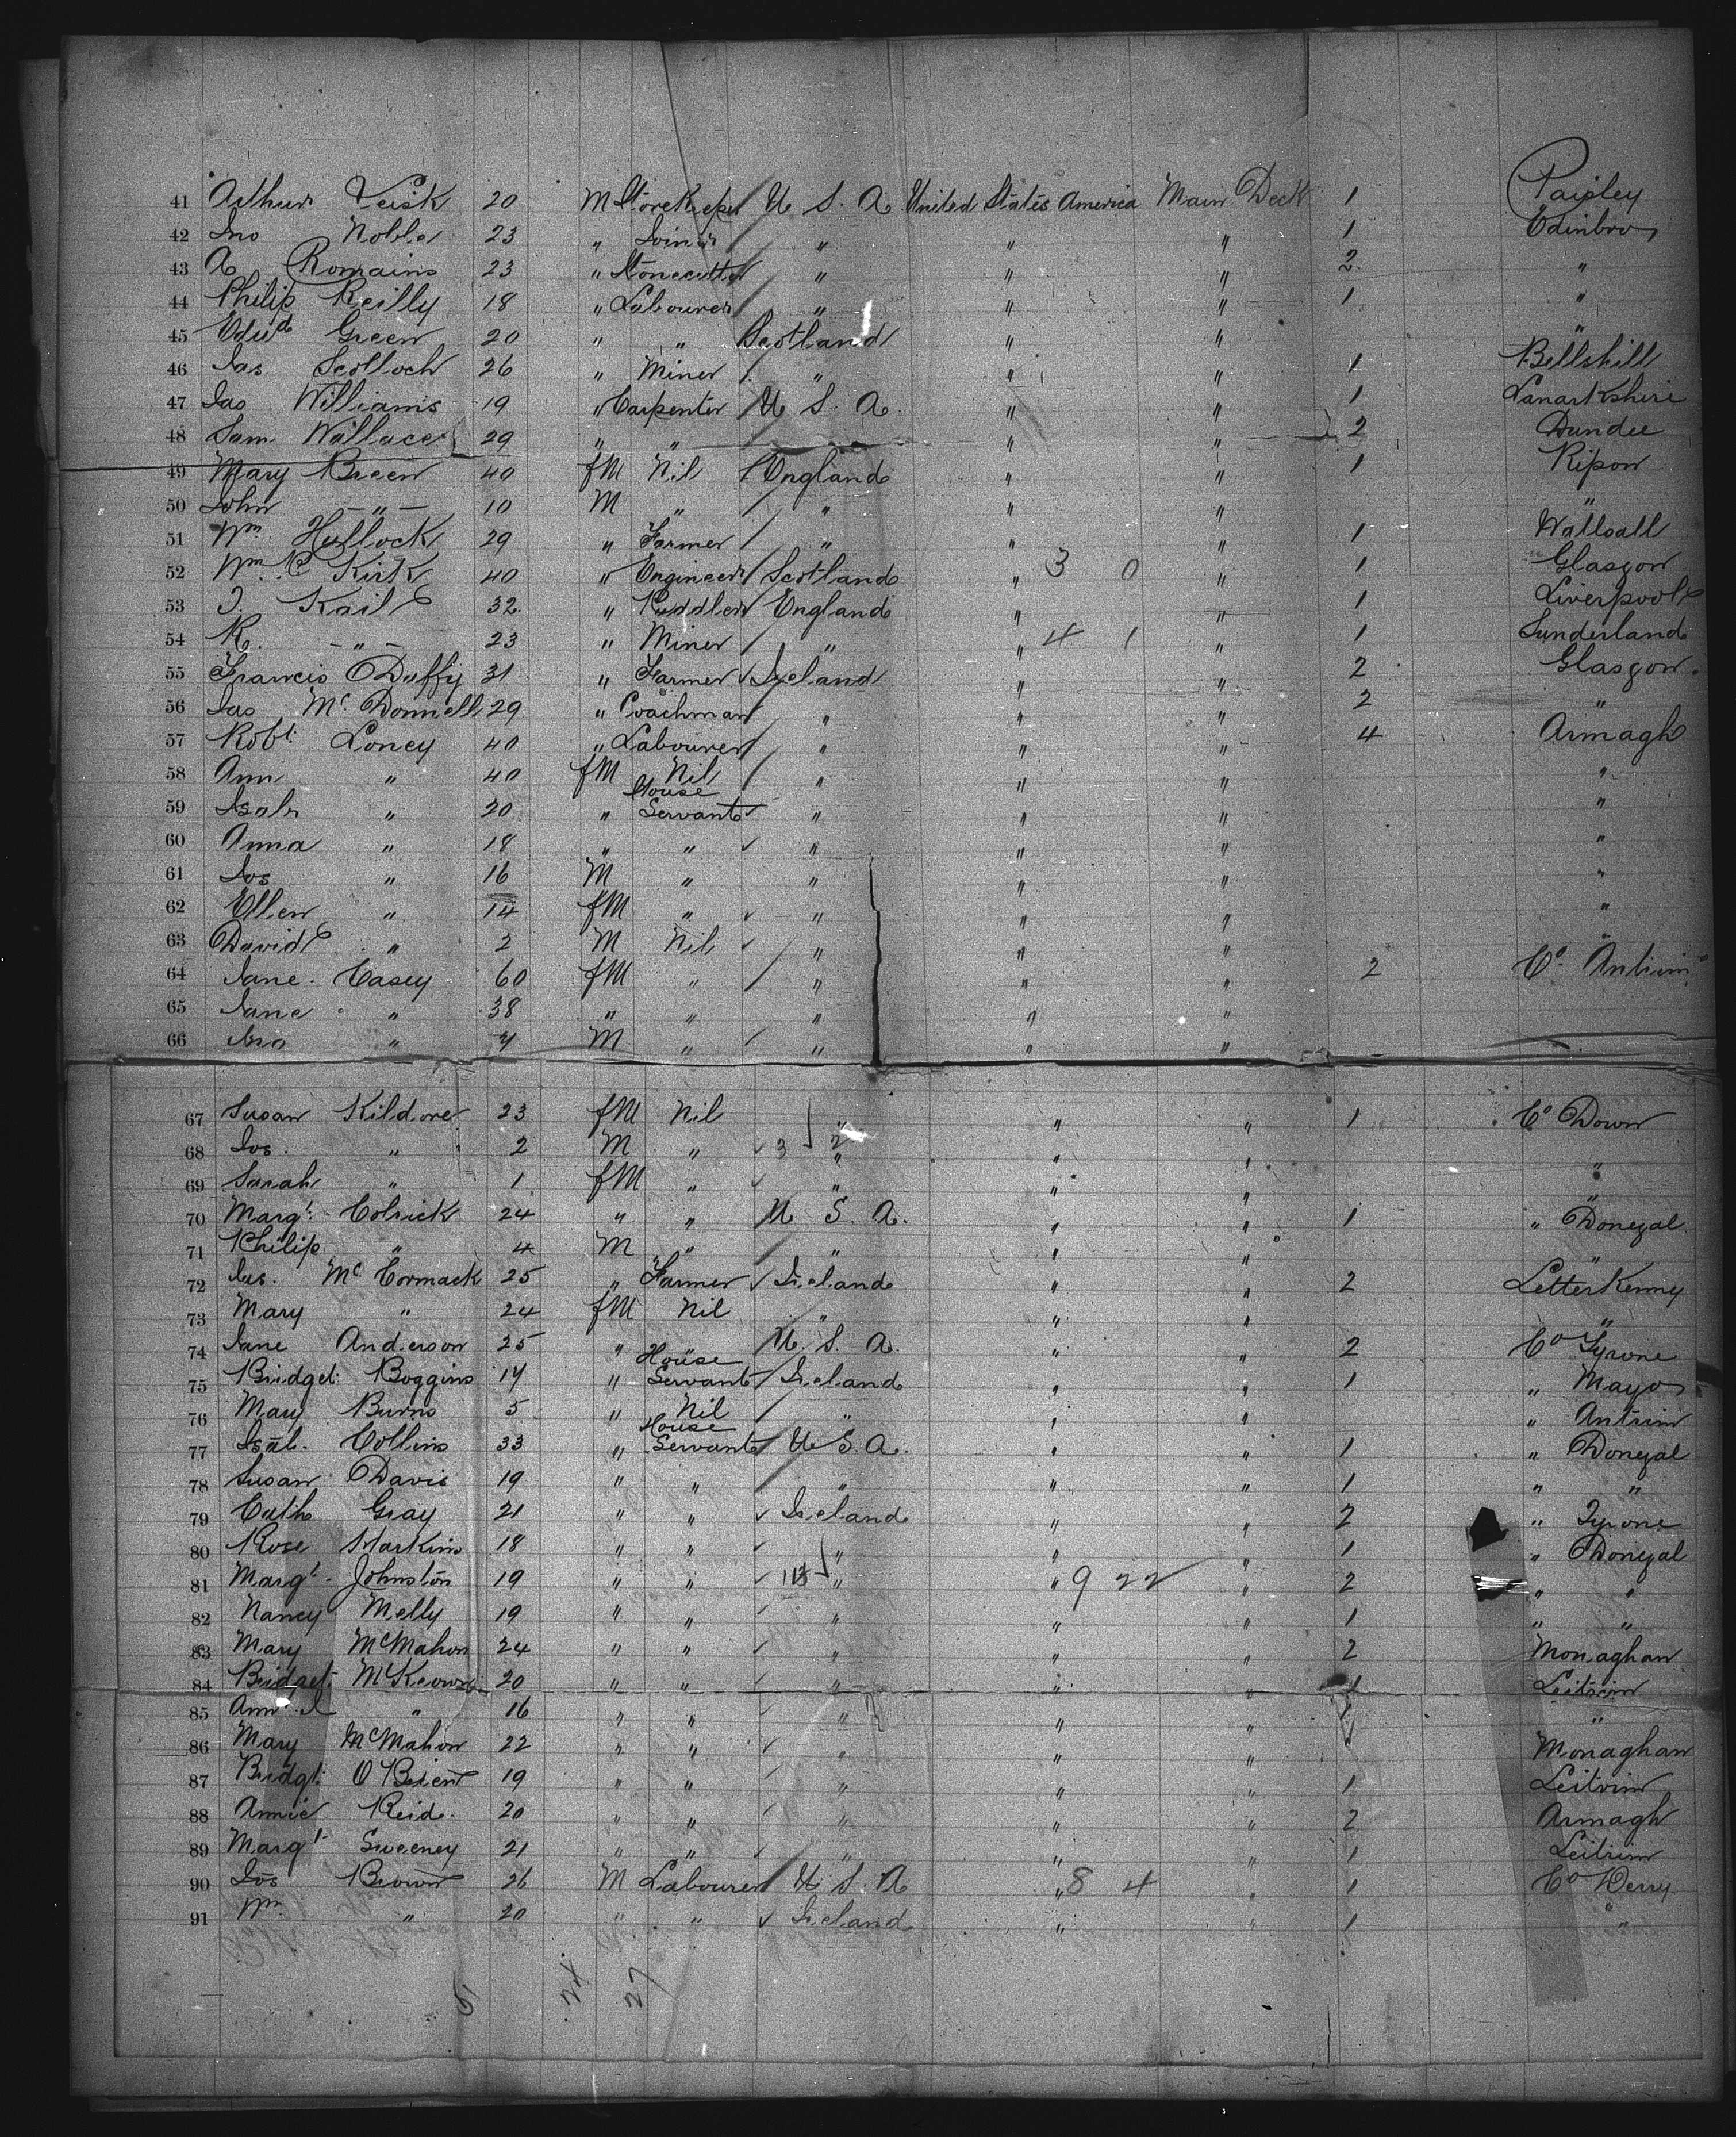 41 Arthur Leisk 20 M Storekeeper U S. A United States America Main Deck 1 Paisley
42 Jno Noble 23 " Joiner " " " 1 Edinbro
43 A Romains 23 " Stonecutter " " " 2 "
44 Philip Reilly 18 " Labourer " " " 1 "
45 Edwd Green 20 " " Scotland " " "
46 Jas. Scolloch 26 " Miner " " " 1 Bellshill
47 Jas Williams 19 " Carpenter U S. A. " " 1 Lanarkshire
48 Sam Wallace 29 " " " " 2 Dundee
49 Mary Breen 40 fM Nil England " " 1 Ripon
50 John - " - 10 M " " " " "
51 Wm Hullock 29 " Farmer " " " 1 Wallsall
52 Wm Kirk 40 " Engineer Scotland " 3 0 " 1 Glasgow
53 J. Kail 32. " Puddler England " " 1 Liverpool
54 R. - " - 23 " Miner " " 4 1 " 1 Sunderland
55 Francis Duffy 31 " Farmer Ireland " " 2 Glasgow.
56 Jas McDonnell 29 " Coachman " " " 2 "
57 Robt. Loney 40 " Labourer " " " 4 Armagh
58 Ann " 40 fM Nil " " " "
59 Isab " 20 " House Servant " " " "
60 Anna " 18 " " " " " "
61 Jos " 16 M " " " " "
62 Ellen " 14 fM " " " " "
63 David " 2 M Nil " " " "
64 Jane. Casey 60 fM " " " " 2 Co. Antrim
65 Jane " 38 " " " " "
66 Jno " 7 M " " " "
67 Susan Kildore 23 fM Nil " " " 1 Co Down
68 Jos. " 2 M " 3 " " " "
69 Sarah " 1 fM " " " " "
70 Margt. Colrick 24 " " U S. A. " " 1 " Donegal
71 Philip " 4 M " " " " "
72 Jas. McCormack 25 " Farmer Ireland " " 2 Letterkenny
73 Mary " 24 fM Nil " " " "
74 Jane Anderson 25 " U. S. A. " " 2 Co Tyrone
75 Bridget. Boggins 17 " House Servant Ireland " " 1 " Mayo
76 Mary Burns 5 " Nil " " " " Antrim
77 Isab. Collins 33 " House Servant U S. A. " " 1 " Donegal
78 Susan Davis 19 " " " " " 1 " "
79 Cath Gray 21 " " Ireland " " 2 " Tyrone
80 Rose Harkins 18 " " " " " 1 " Donegal
81 Margt. Johnston 19 " " " " 9 22 " 2 " "
82 Nancy Melly 19 " " " " " 1 " "
83 Mary McMahon 24 " " " " " 2 Monaghan
84 Bridget. McKeown 20 " " " " " 1 Leitrim
85 Ann " 16 " " " " " "
86 Mary McMahon 22 " " " " " 1 Monaghan
87 Bridgt. O'Brien 19 " " " " " 1 Leitrim
88 Annie Reid. 20 " " " " " 2 Armagh
89 Margt Sweeney 21 " " " " " 1 Leitrim
90 Jos Brown 26 M Labourer U S. A " 8 4 " 1 Co Derry
91 Wm " 20 " " Ireland " " 1 "
24 27